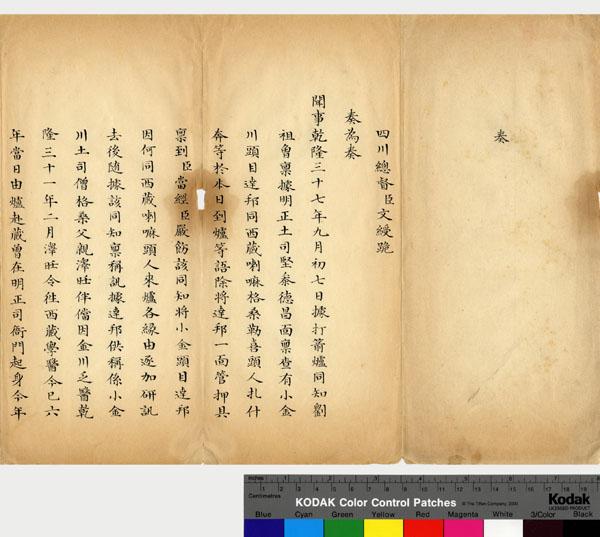 奏
四川總督臣文綬跪
奏為奏
聞事乾隆三十七年九月初七日據打箭爐同知劉
祖曾稟據明正土司堅參德昌面稟查有小金
川頭目達邦同西藏喇嘛格桑勒喜頭人扎什
奔等於本日到爐等語除將達邦一面管押具
稟到臣當經臣嚴飭該同知將小金頭目達邦
因何同西藏喇嘛頭人來爐各緣由逐加研訊
去後隨據該同知稟稱訊據達邦供稱係小金
川土司僧格桑父親澤旺伴儅因金川乏醫乾
隆三十一年二月澤旺令往西藏學醫今已六
年當日由爐赴藏曾在明正司衙門起身今年
inches
Centimetres
KODAK Color Control Patches
Kodak
LICENSED PRODUCT
Blue Cyan Green Yellow Red Magenta White 3/Color Black